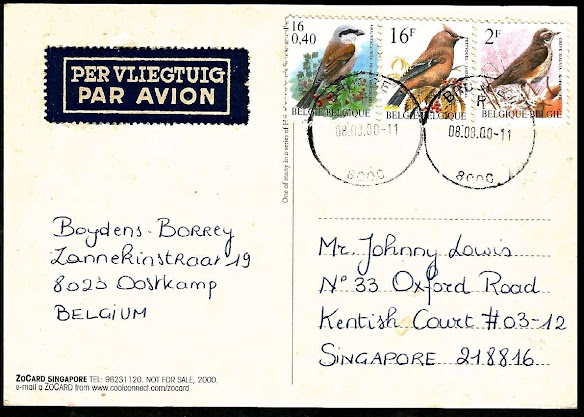 PER VLIEGTUIG
PAR AVION
16
0,40
16F
2F
BELGIE-BELGIQUE
BELGIE-BELGIQUE
BELGIE-BELGIQUE
08.08.00-11
08.08.00-11
8000
8000
One of many in a series of
Boydens-Borrey
Zannekinstraat 19
8020 Oostkamp
BELGIUM
Mr. Johnny Lowis
N° 33 Oxford Road
Kentish Court #03-12
SINGAPORE 218816
ZOCARD SINGAPORE TEL: 96231120. NOT FOR SALE, 2000.
e-mail a ZOCARD from www.coolconnect.com/zocard